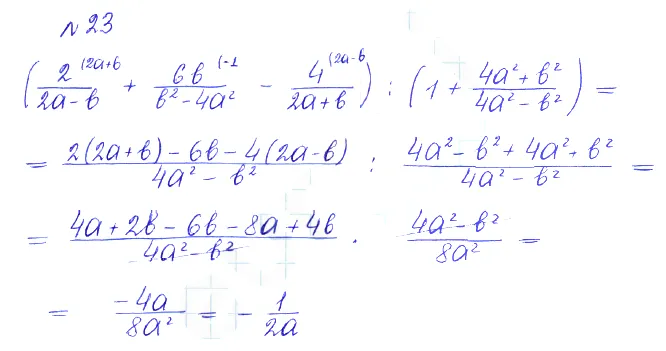 № 23
(2^(2a+b / (2a-b) + 6b^(-1 / (b²-4a²) - 4^(2a-b / (2a+b)) : (1 + (4a²+b²) / (4a²-b²)) =
= (2(2a+b) - 6b - 4(2a-b)) / (4a²-b²) : (4a²-b²+4a²+b²) / (4a²-b²) =
= (4a+2b-6b-8a+4b) / (4a²-b²) · (4a²-b²) / (8a²) =
= (-4a) / (8a²) = - 1 / (2a)